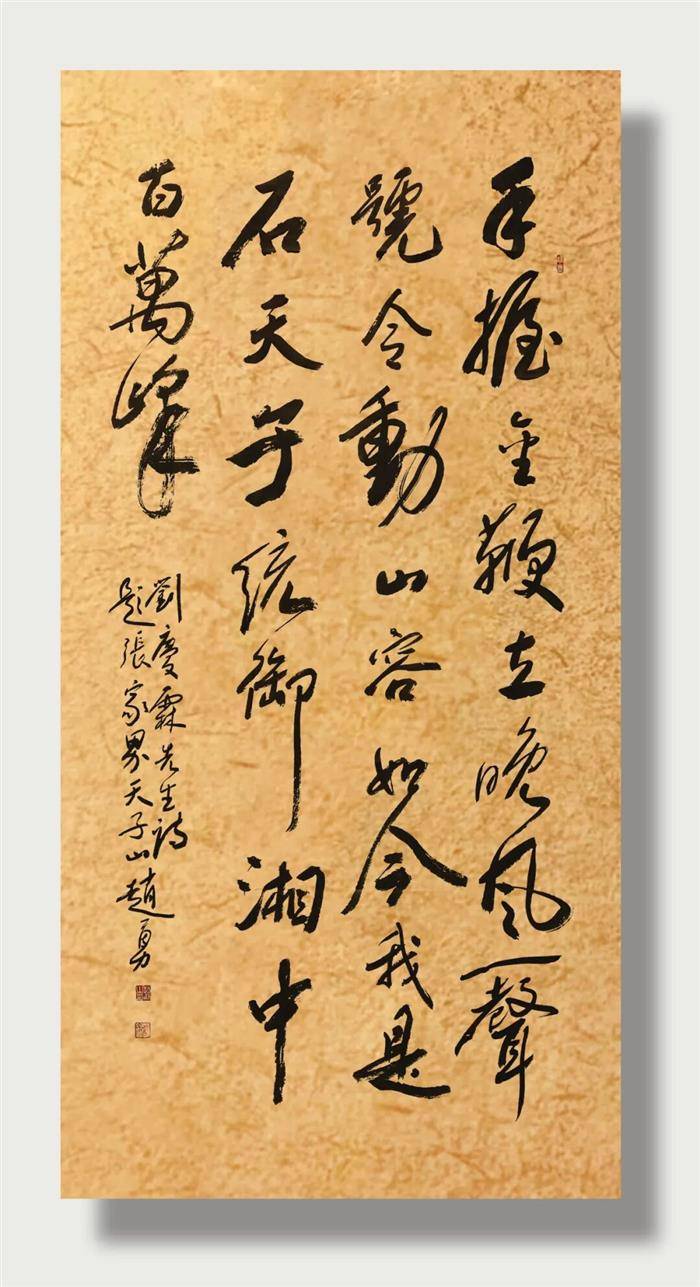 手握金鞭立晚风一聲
號令動山容如今我是
石天子統御湘中
百萬峰
劉慶霖先生詩
題張家界天子山趙勇